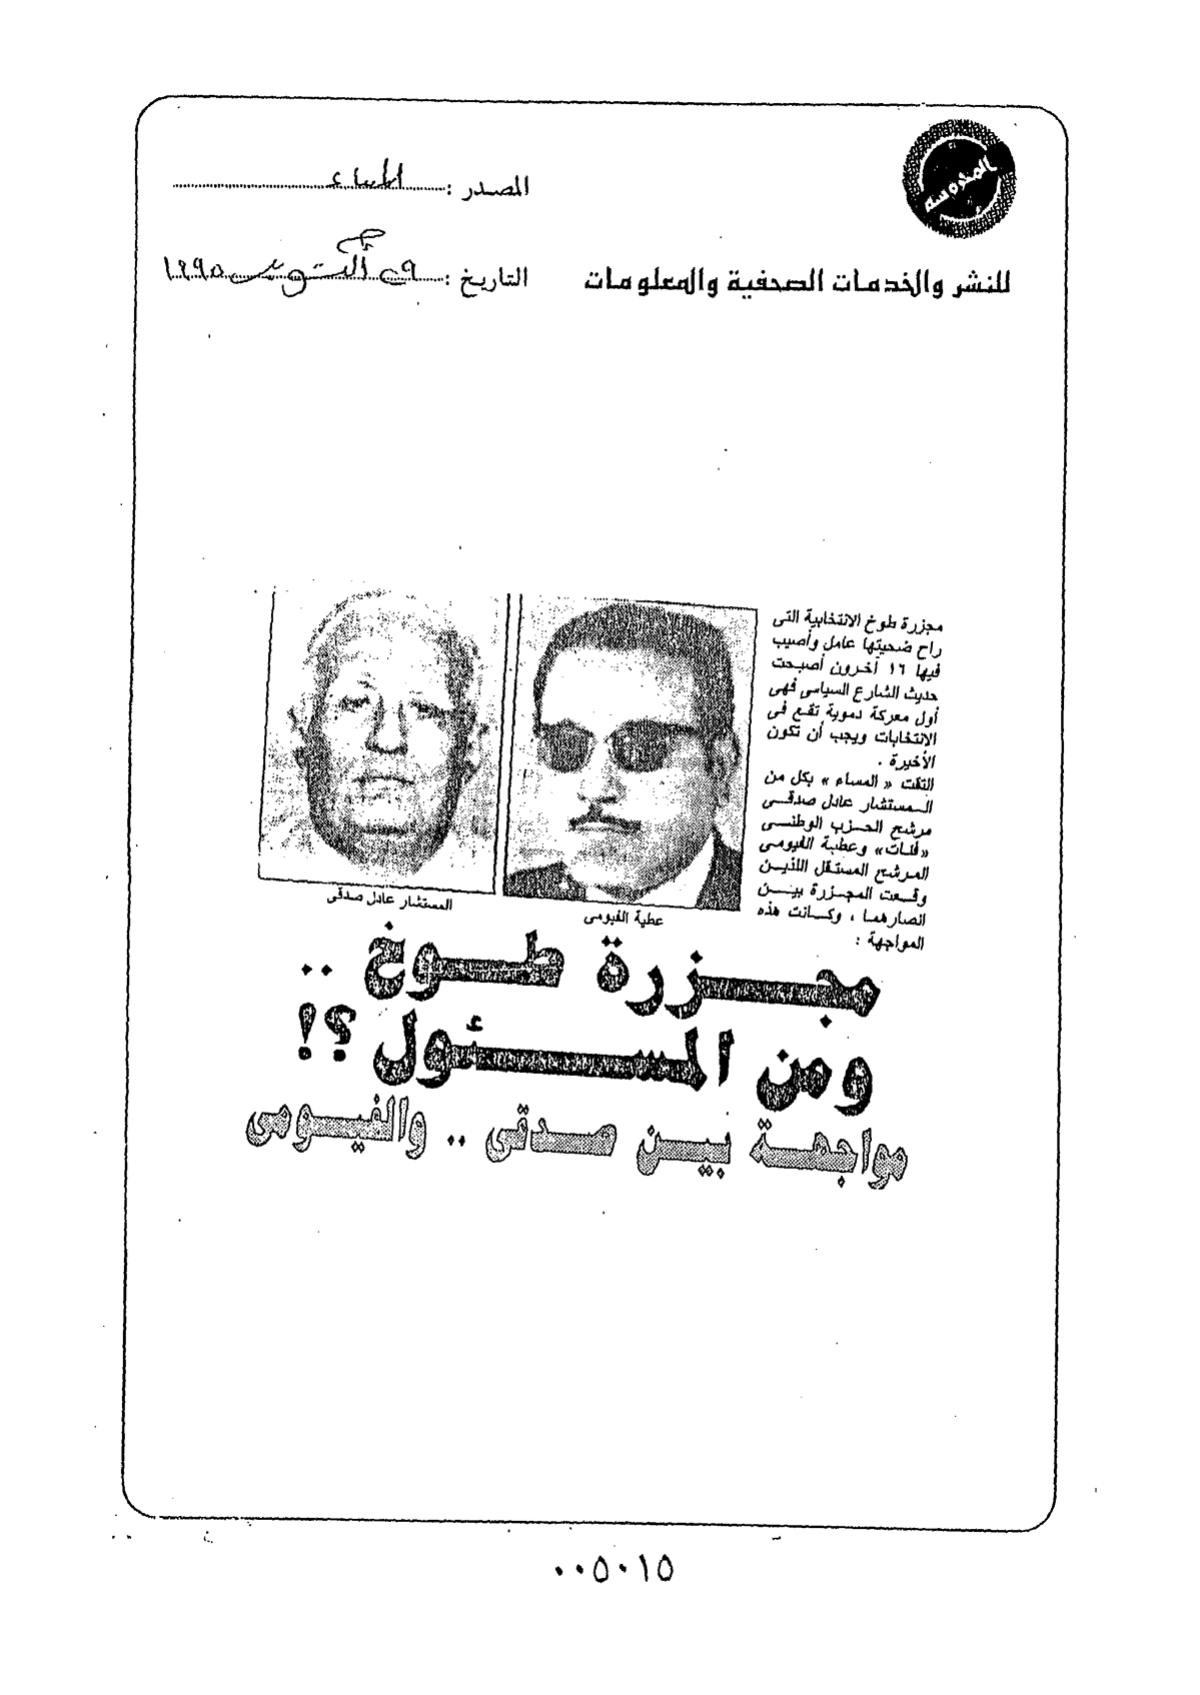 المصدر : المساء
للنشر والخدمات الصحفية والمعلومات
التاريخ : ٢٩ أكتوبر ١٩٩٥
مجزرة طوخ الانتخابية التى
راح ضحيتها عامل وأصيب
فيها ١٦ آخرون أصبحت
حديث الشارع السياسى فهى
أول معركة دموية تقع فى
الانتخابات ويجب أن تكون
الأخيرة .
التقت « المساء » بكل من
المستشار عادل صدقى
مرشح الحزب الوطنى
«فئات» وعطية الفيومى
المرشح المستقل اللذين
وقعت المجزرة بين
انصارهما ، وكانت هذه
المواجهة :
عطية الفيومى
المستشار عادل صدقى
مجزرة طوخ ..
ومن المسئول ؟!
مواجهة بين صدقى .. والفيومى
٠٠٥٠١٥